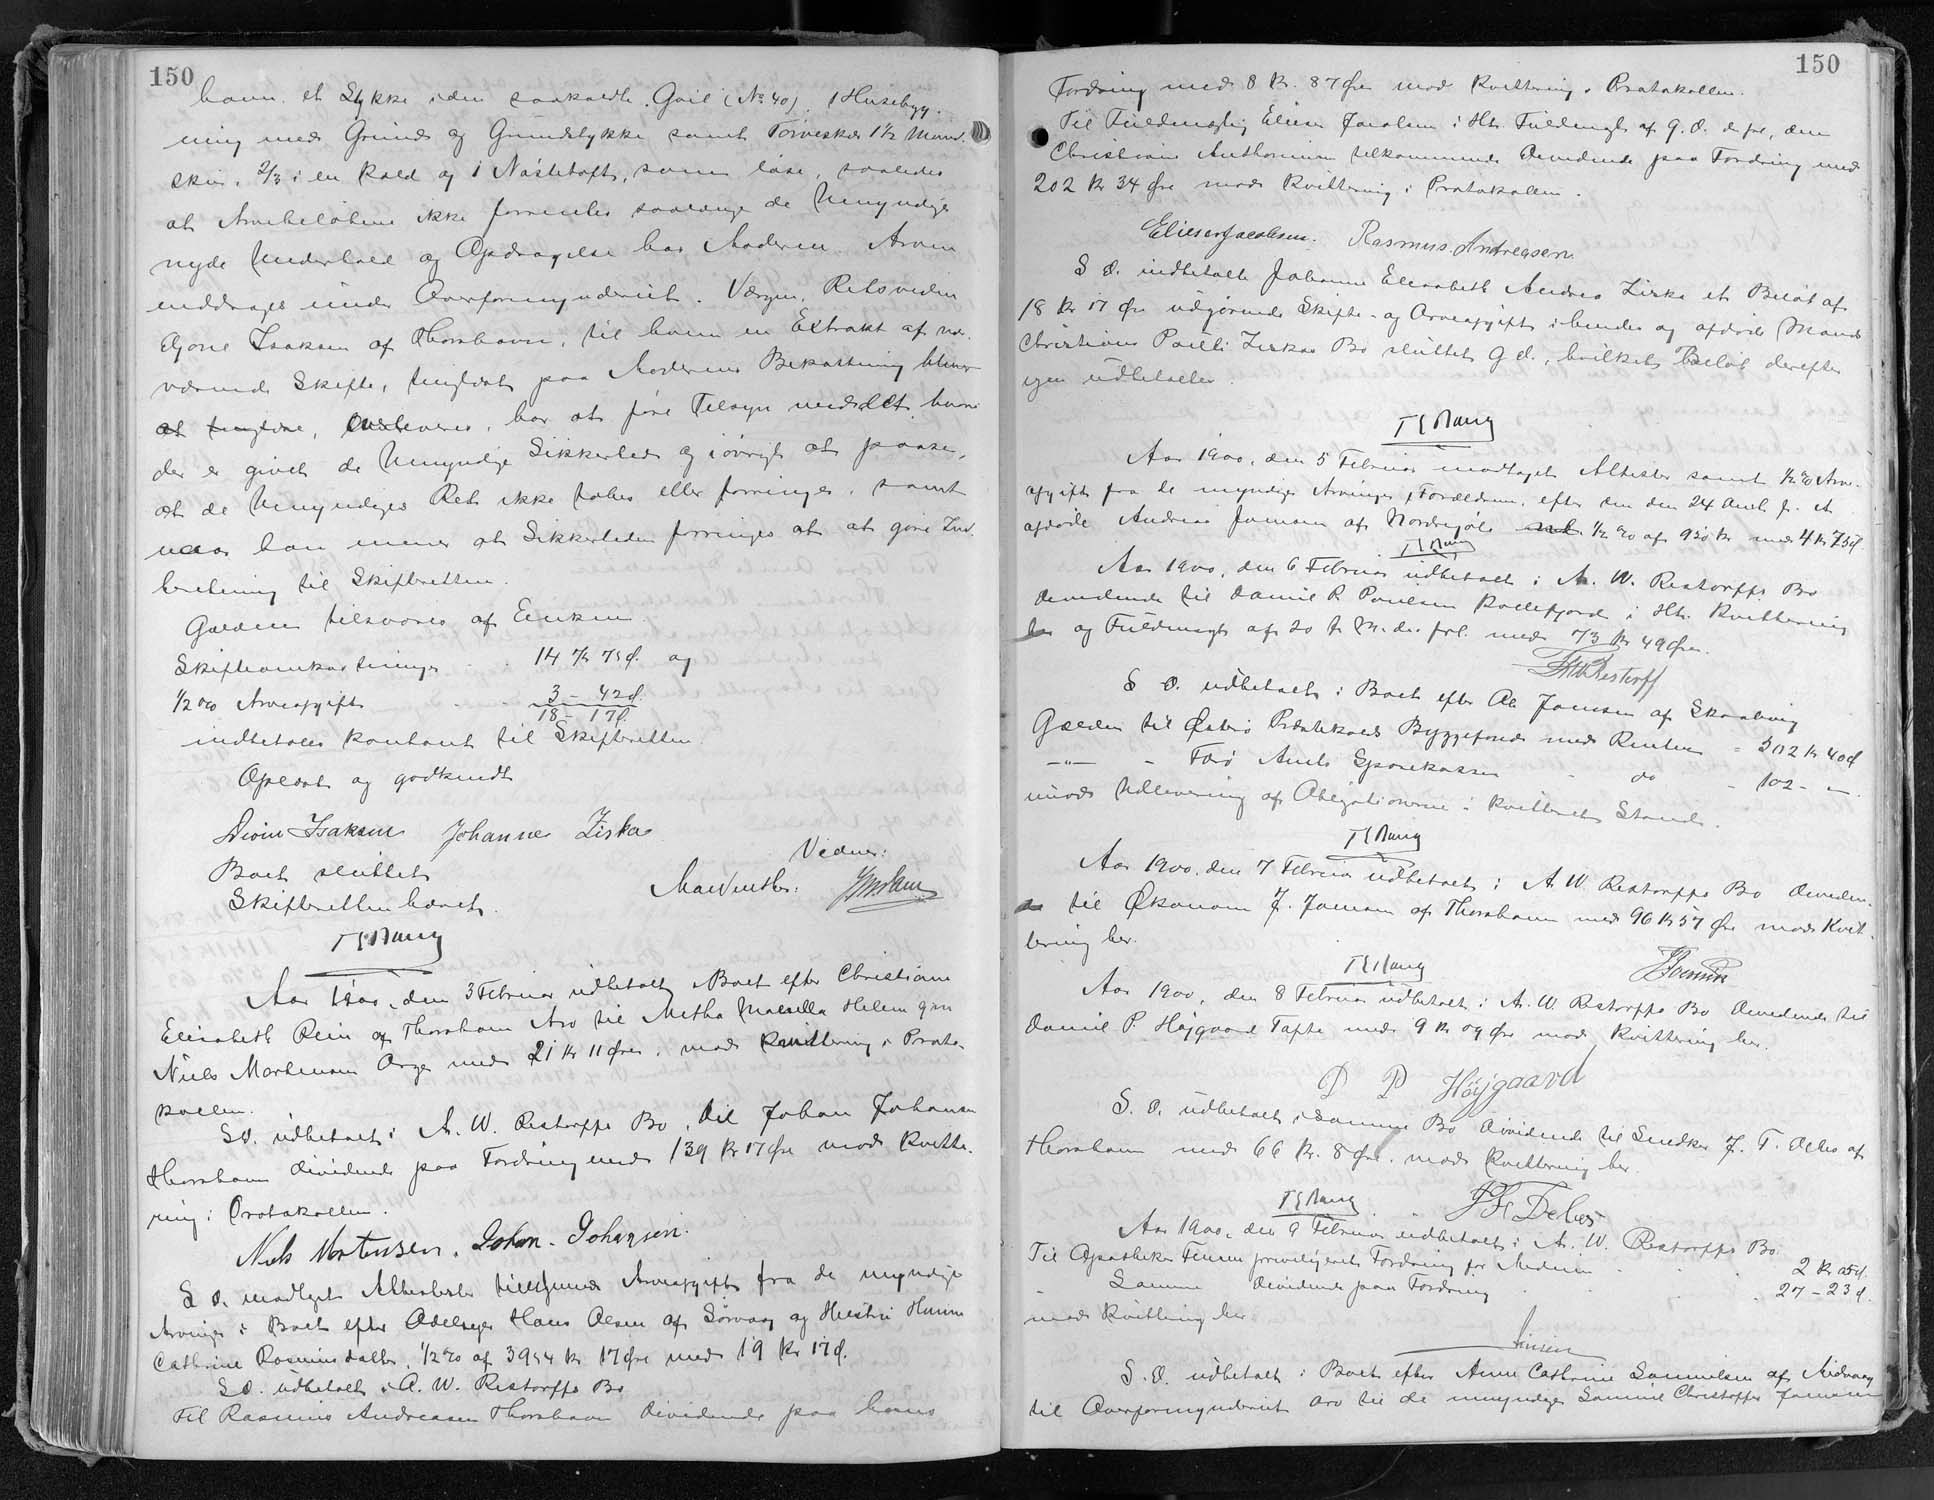 150
havn. et Stykke i den saakaldte Gail (No 40) 1 Husebyg-
ning med Grund og Grundstykke samt Törveskær 1½ Mand.
skin, ⅔ i en Kald og 1 Nästetoft, som lös, saaledes
at Arvebelöbene ikke forrentes saalænge de Umyndige
nyde Underhold og Opdragelse hos Moderen. Arven
inddrages under Overformynderiet. Værgen, Retsvidne
Isaksen af Thorshavn, til hvem en Extrakt af nær-
værende Skifte, tinglæst paa Moderens Bekostning bliver
at tinglæse, leveres, har at före Tilsyn med det, hvori
der er givet de Umyndige Sikkerhed og iövrigt at paase,
at de Umyndiges Ret ikke tabes eller forringes, samt
naar han mener at Sikkerheden forringes at at göre Ind-
beretning til Skifteretten.
Gælden tilsvares af Enken
Skifteomkostninger 14 Kr 75 Ø. og
½% Arveafgift 3 - 42 Ø.
18 - 17 Ø.
indbetales kontant til Skifteretten.
Oplæst og godkendt
Isaksen Johanne Ziska
Boet sluttet Vidner:
Skifteretten hævet.
Aar 1900, den 3 Februar udbetalt i Boet efter Christiane
Elisabeth Rein af Thorshavn Arv til Metha Malvilla Helene gm
Niels Mortensen Arge med 21 Kr 11 Øre, mod Kvittering i Proto-
kollen.
S.D. udbetalt i A. W. Restorffs Bo, til Johan Johansen
Thorshavn Dividende paa Fordring med 139 Kr 17 Øre mod Kvitte-
ring i Protokollen.
Niels Mortensen. Johan Johansen.
S.D. modtaget Arveafgift fra de myndige
Arvinger i Boet efter Odelseier Hans Olsen af Sörvaag og Hustru
Cathrine Rasmusdatter, ½% af 3954 Kr 17 Øre med 19 Kr 17 Ø.
S.D. udbetalt i A. W. Restorffs Bo
Til Rasmus Andreasen Thorshavn Dividende paa hans
150
Fordring med 8 Kr. 87 Øre mod Kvittering i Protokollen.
Til Fuldmægtig Elieser Jacobsen i Hht. Fuldmagt af g. D. d. frl, den
Christian Anthonius tilkommende Dividende paa Fordring med
202 Kr 34 Øre mod Kvittering i Protokollen.
Elieser Jacobsen. Rasmus Andreasen
S.D. indbetalte Johanne Elisabeth Andrea Ziska et Belöb af
18 Kr 17 Øre udgörende Skifte- og Arveafgift i hendes og afdöde Mands
Christian Poulli Ziskas Bo sluttet g. d., hvilket Belöb derefter
igen udbetaltes.
Aar 1900, den 5 Februar modtaget Attester samt ½% Arve-
afgift fra de myndige Arvinger, Forældrene, efter den den 24
afdöde Andreas Joensen af ½% af 950 Kr med 4 Kr 75 Ø
Aar 1900, den 6 Februar udbetalt i A. W. Restorffs Bo
Dividende til Daniel P. Poulsen Kollefjord i Hht. Kvittering
og Fuldmagt af 20 f. M. d. frl. med 73 Kr 49 Øre.
Restorff
S.D. udbetalt i Boet efter Joensen af Skaalevig
Gælden til Østerö Præstekalds Byggefond med Renter - 302 Kr 40 Ø
—"— - Færö Amts Sparekasse - do - 102 - —
mod Udlevering af Obligationerne i kvitteret Stand.
Aar 1900, den 7 Februar udbetalt i A. W. Restorffs Bo Dividen-
de til Økonom J. Joensen af Thorshavn med 96 Kr 57 Øre mod Kvit-
tering her.
Aar 1900, den 8 Februar udbetalt i A. W. Restorffs Bo Dividende til
Daniel P. Höjgaard Tofte med 9 Kr 09 Øre mod Kvittering her.
D P Höjgaard
S.D. udbetalt i samme Bo Dividende til Snedker J. F. Debes af
Thorshavn med 66 Kr. 8 Øre. mod Kvittering her.
J F Debes
Aar 1900, den 9 Februar udbetalt i A. W. Restorffs Bo
Til Apotheker privilegeret Fordring for Medicin 2 Kr
- Samme Dividende paa Fordring 27 - 23 Ø.
mod Kvittering her
S.D. udbetalt i Boet efter Anne Cathrine Samuelsen af Midvaag
til Overformynderiet Arv til de umyndige Samuel Christoffer Joensen